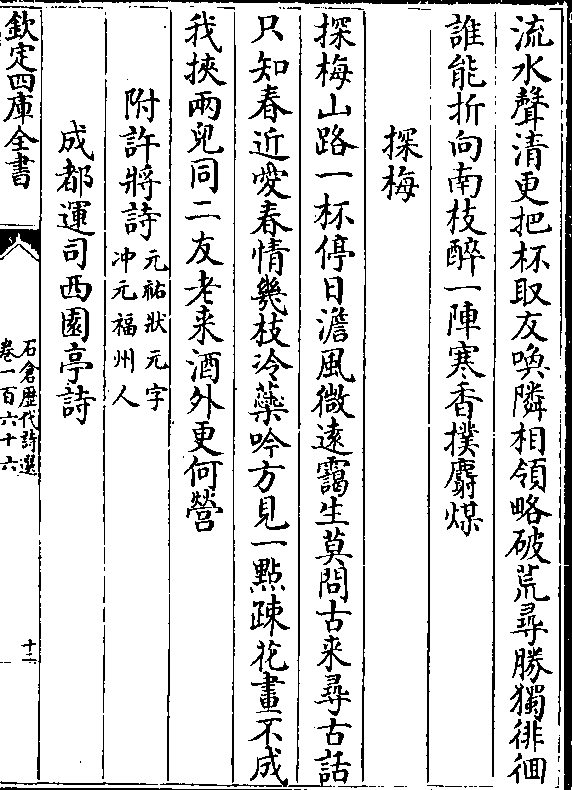 流水聲清更把杯取友喚隣相領略破荒尋勝獨徘徊
誰能折向南枝醉一陣寒香撲麝煤
探梅
探梅山路一杯停日澹風微遠靄生莫問古来尋古話
只知春近愛春情幾枝冷蘂吟方見一點疎花畫不成
我挾兩兒同二友老来酒外更何營
附許將詩元祐狀元字
冲元福州人
成都運司西園亭詩
欽定四庫全書
石倉歴代詩選
卷一百六十六
十二